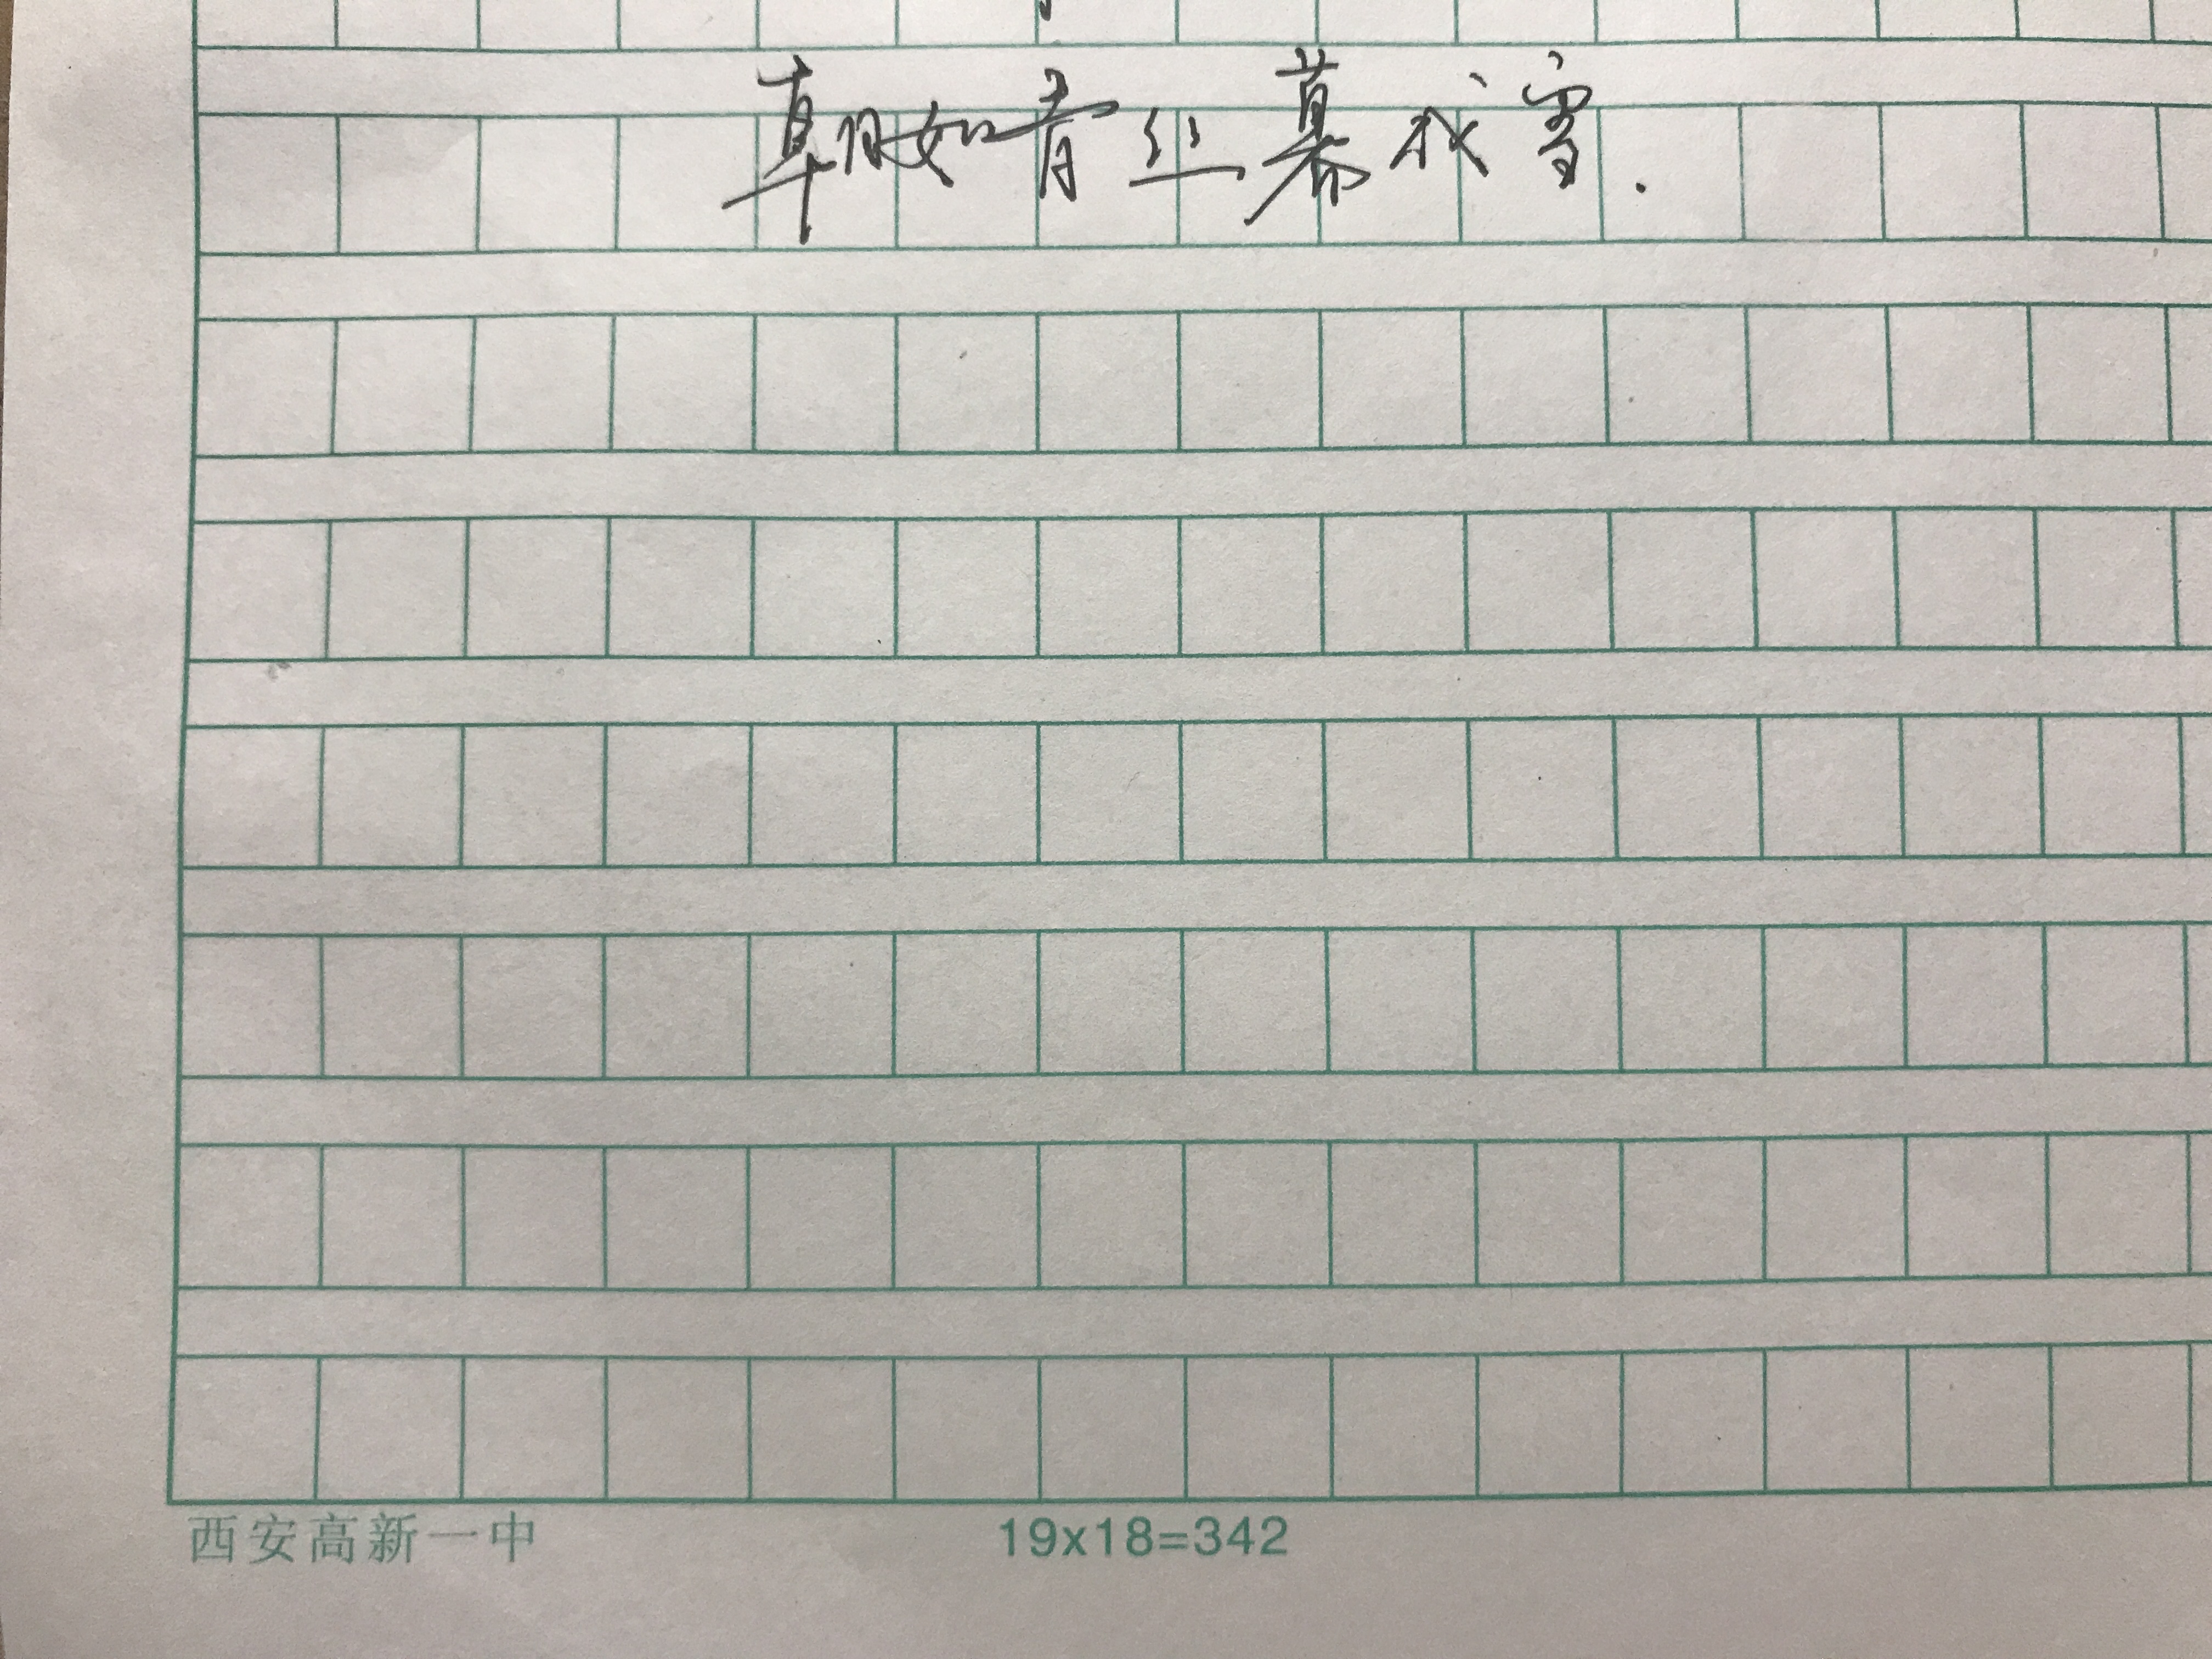 朝如青丝幕成雪.
西安高新一中
19x18=342